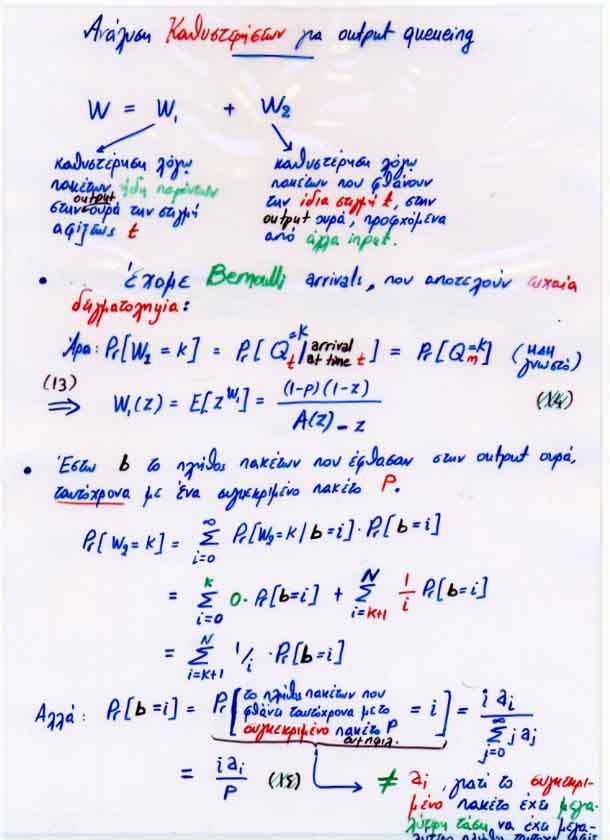 Ανάλυση Καθυστερήσεων για output queueing
W = W₁ + W₂
καθυστέρηση λόγω
πακέτων ήδη παρόντων
στην output ουρά την στιγμή
αφίξεως t
καθυστέρηση λόγω
πακέτων που φθάνουν
την ίδια στιγμή t, στην
output ουρά, προερχόμενα
από άλλα input.
• έχομε Bernoulli arrivals, που αποτελούν τυχαία
δειγματοληψία:
Άρα: Pr[W₂ = k] = Pr[Qₜ=k | arrival at time t] = Pr[Qₘ=k] (ήδη γνωστό)
(13) ⇒ W₁(z) = E[z^W₁] = (1-p)(1-z) / A(z) - z (14)
• Έστω b το πλήθος πακέτων που έφθασαν στην output ουρά,
ταυτόχρονα με ένα συγκεκριμένο πακέτο P.
Pr[W₂ = k] = ∑_{i=0}^{∞} Pr[W₂=k | b=i] · Pr[b=i]
= ∑_{i=0}^{k} 0 · Pr[b=i] + ∑_{i=k+1}^{N} 1/i Pr[b=i]
= ∑_{i=k+1}^{N} 1/i · Pr[b=i]
Αλλά: Pr[b=i] = Pr[το πλήθος πακέτων που φθάνει ταυτόχρονα με το συγκεκριμένο πακέτο P = i] = i aᵢ / ∑_{j=0}^{∞} j aⱼ
= i aᵢ / p (15) → ≠ aᵢ, γιατί το συγκεκρι-
μένο πακέτο έχει μεγα-
λύτερη τάση να έχει μεγα-